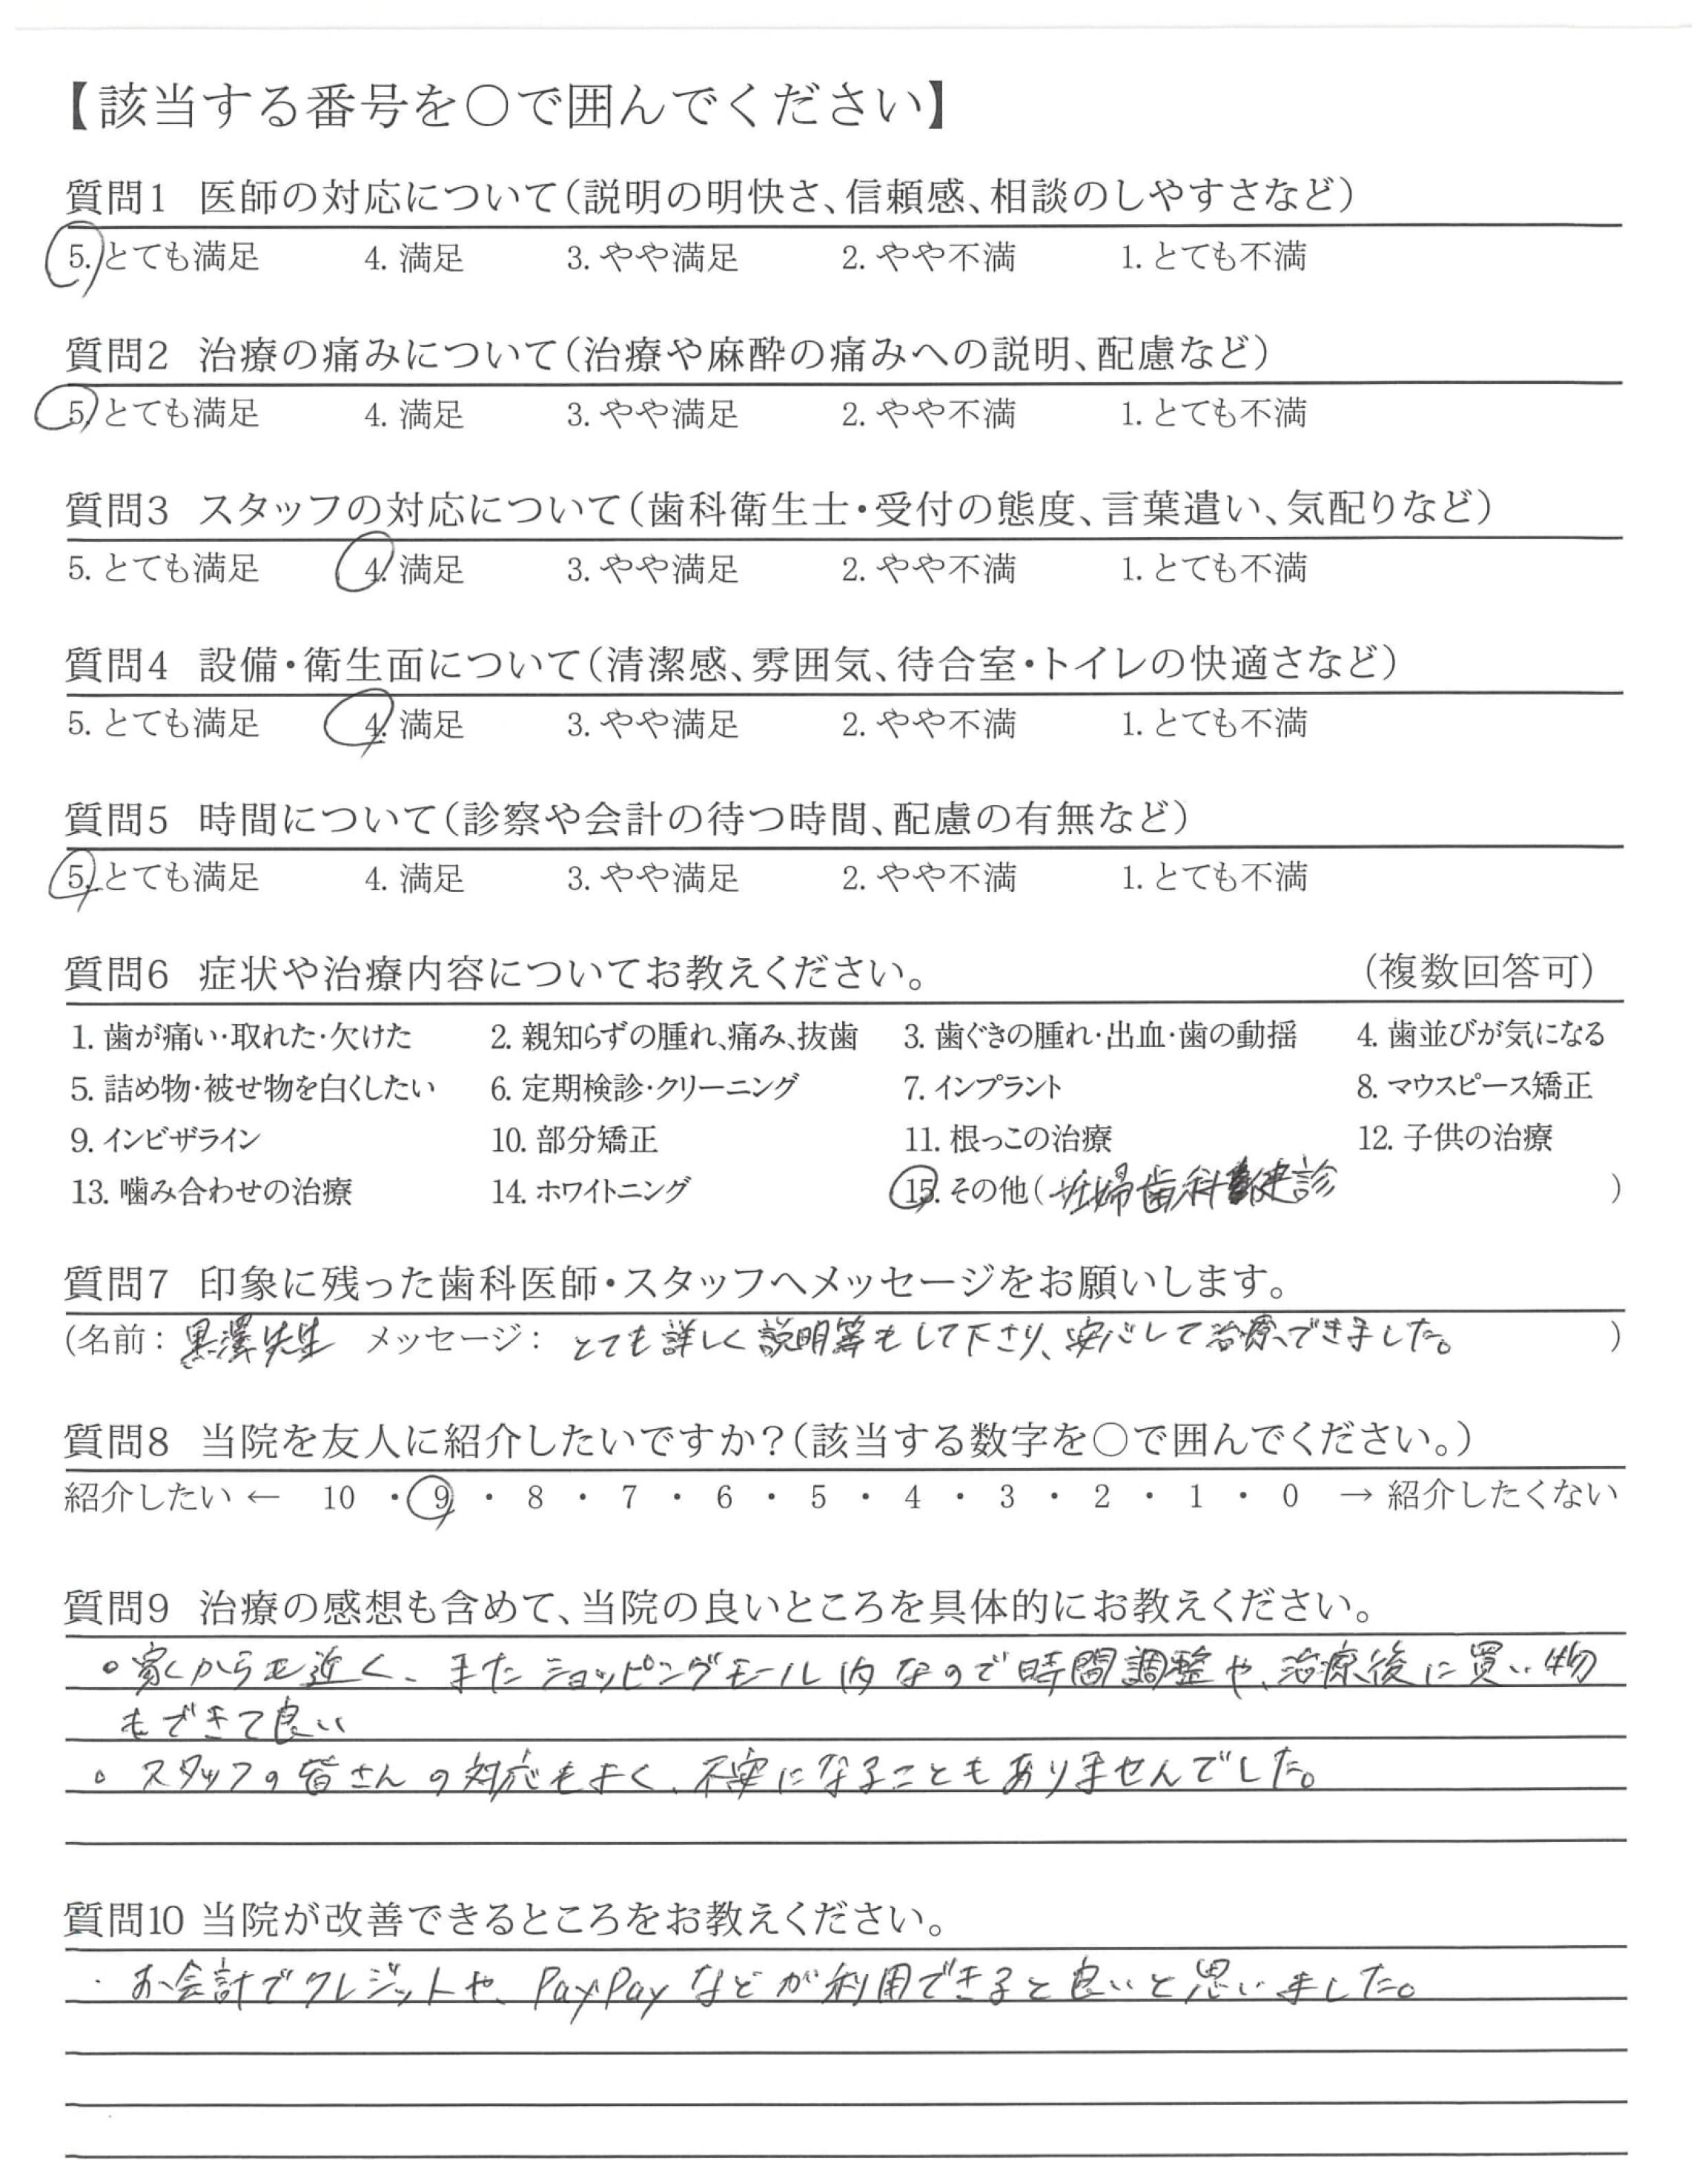 【該当する番号を○で囲んでください】
質問1 医師の対応について(説明の明快さ、信頼感、相談のしやすさなど)
5. とても満足 4. 満足 3. やや満足 2. やや不満 1. とても不満
質問2 治療の痛みについて(治療や麻酔の痛みへの説明、配慮など)
5. とても満足 4. 満足 3. やや満足 2. やや不満 1. とても不満
質問3 スタッフの対応について(歯科衛生士・受付の態度、言葉遣い、気配りなど)
5. とても満足 4. 満足 3. やや満足 2. やや不満 1. とても不満
質問4 設備・衛生面について(清潔感、雰囲気、待合室・トイレの快適さなど)
5. とても満足 4. 満足 3. やや満足 2. やや不満 1. とても不満
質問5 時間について(診察や会計の待つ時間、配慮の有無など)
5. とても満足 4. 満足 3. やや満足 2. やや不満 1. とても不満
質問6 症状や治療内容についてお教えください。 (複数回答可)
1. 歯が痛い・取れた・欠けた 2. 親知らずの腫れ、痛み、抜歯 3. 歯ぐきの腫れ・出血・歯の動揺 4. 歯並びが気になる
5. 詰め物・被せ物を白くしたい 6. 定期検診・クリーニング 7. インプラント 8. マウスピース矯正
9. インビザライン 10. 部分矯正 11. 根っこの治療 12. 子供の治療
13. 噛み合わせの治療 14. ホワイトニング 15. その他(妊婦歯科健診 )
質問7 印象に残った歯科医師・スタッフへメッセージをお願いします。
(名前: 黒澤先生 メッセージ: とても詳しく説明等もして下さり、安心して治療できました。 )
質問8 当院を友人に紹介したいですか?(該当する数字を○で囲んでください。)
紹介したい ← 10 ・ 9 ・ 8 ・ 7 ・ 6 ・ 5 ・ 4 ・ 3 ・ 2 ・ 1 ・ 0 → 紹介したくない
質問9 治療の感想も含めて、当院の良いところを具体的にお教えください。
○家からも近く、またショッピングモール内なので時間調整や、治療後に買い物
もできて良い
○スタッフの皆さんの対応もよく、不安になることもありませんでした。
質問10 当院が改善できるところをお教えください。
・お会計でクレジットや、PayPayなどが利用できると良いと思いました。